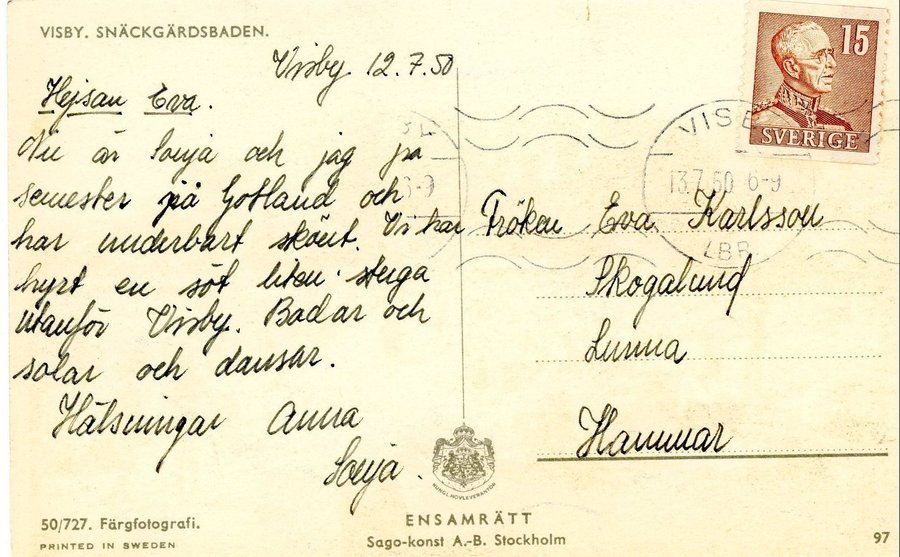 VISBY. SNÄCKGÄRDSBADEN.
Visby 12.7.50
Hejsan Eva.
Nu är Sonja och jag på
semester på Gotland och
har underbart skönt. Vi har
hyrt en söt liten stuga
utanför Visby. Badar och
solar och dansar.
Hälsningar Anna
Sonja.
50/727. Färgfotografi.
PRINTED IN SWEDEN
15
SVERIGE
13.7.50 6-9
LBR
Fröken Eva Karlsson
Skogalund
Lunna
Hammar
KUNGL. HOVLEVERANTÖR
ENSAMRÄTT
Sago-konst A.-B. Stockholm
97